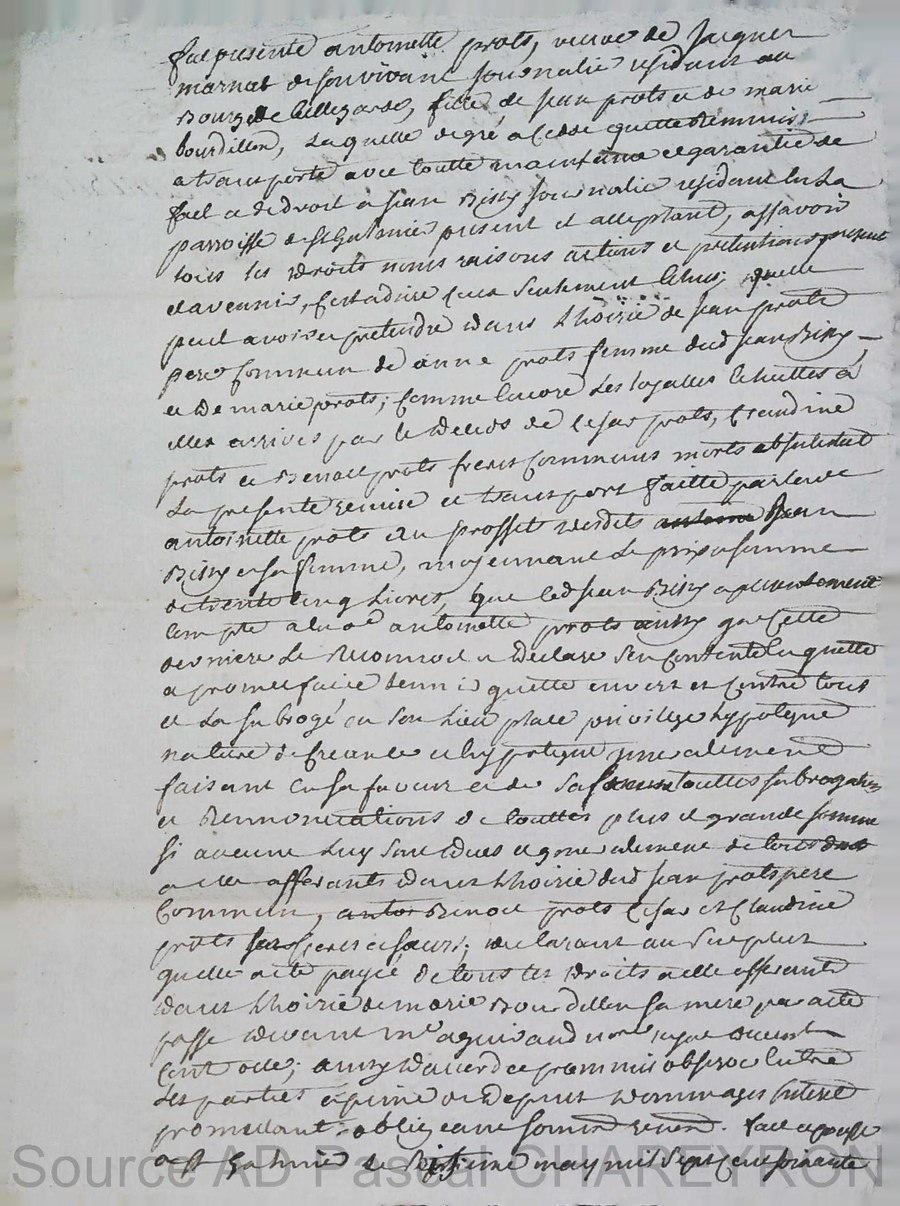 fut presente antoinette prots, veuve de Jacques
marnat de son vivant Journalie residant au
Bourg de bellegarde, fille de Jean prots et de marie
bourdillon, Laquelle de gré a Cedde quitte Remmis
et transporte avec toutte maintenue et garantie de
fait et de droit a Jean Bissy Journalie residant en La
parroisse de St Galmier present et acceptant, assavoir
tous les droits noms raisons actions et pretentions present
et avenir, Cest adire Ceux seulement quelle
peut avoir et pretendre dans Lhoirie de Jean prots
pere Commun de anne prots femme dud Jean Bissy
et de marie prots; Comme encore Les légalles Echuttes à
elles arrives par le deces de Cesar prots, Claudine
prots et Benoit prots freres Communs morts abintestat
La presente remise et transport faitte par lade
antoinette prots au proffet desdits Jean
Bissy et sa femme, moyennant Le prix et somme
de trente Cinq Livres, que led Jean Bissy a presentement
Compté a lade antoinette prots ainsy que Cette
derniere Le Reconnoit et Declare sen Contente Laquitte
a promet faire tenir quitte envers et Contre tous
et La subrogé en son Lieu place privilege hypoteque
nature de Creance et hypoteque generalement
faisant en sa faveur et de sa femme touttes subrogations
et Remmonerations de touttes plus et grande somme
si aucune Luy sont dues et generalement de touts
a elle afferants dans Lhoirie dud Jean prots pere
Commun, Benoit prots Cesar et Claudine
prots freres et sœurs; declarant au surplus
quelle a été payée de tous les droits a elle afferants
dans Lhoirie de marie Bourdillon sa mere par acte
passe devant me aguiraud nore
Cent octe; ainsy daccord et promis observe Entre
Les parties a peine de Depens Dommages Interet
promettant obligeant soumd renond. fait et passé
a St Galmié Le may mil sept Cent soixante
Source AD Pascal CHAREYRON